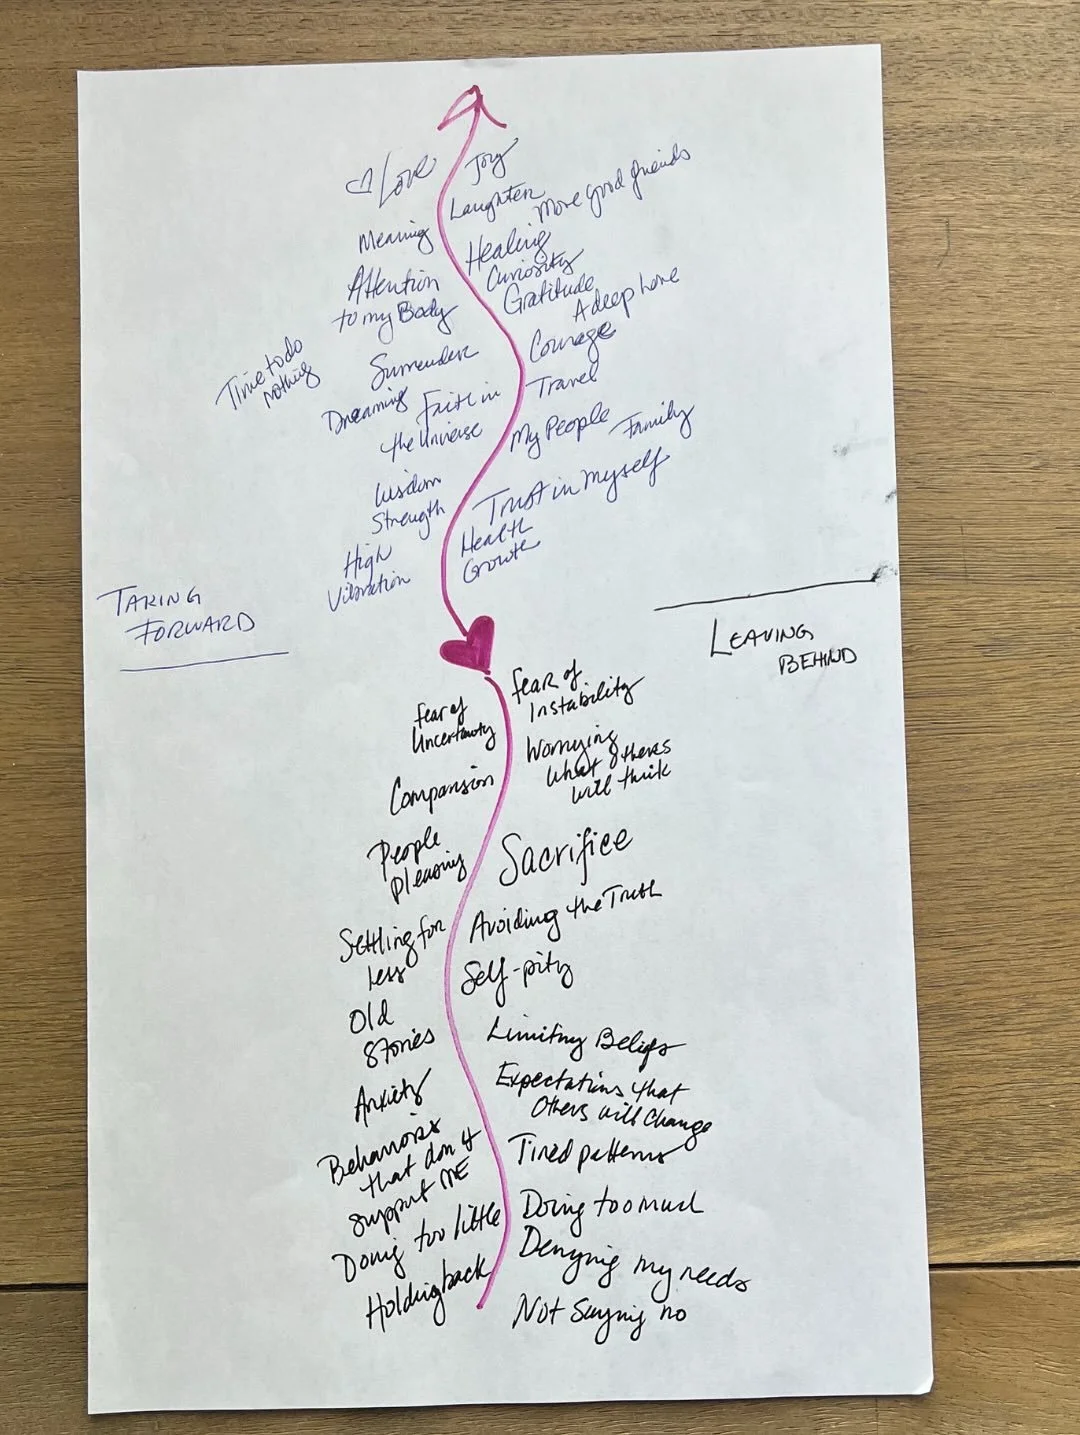 ♡ Love
Joy
Laughter
More good friends
Meaning
Healing
Curiosity
Attention
to my Body
Gratitude
A deep love
Time to do
nothing
Surrender
Courage
Dreaming
Faith in
the Universe
Travel
My People
Family
Wisdom
Strength
Trust in myself
High
Vibration
Health
Growth
TAKING
FORWARD
LEAVING
BEHIND
fear of
Uncertainty
fear of
Instability
Worrying
what others
will think
Comparison
People
pleasing
Sacrifice
Settling for
less
Avoiding the Truth
Self-pity
Old
Stories
Limiting Beliefs
Anxiety
Expectations that
Others will Change
Behaviors
that don't
support ME
Tired patterns
Doing too little
Doing too much
Holding back
Denying my needs
Not saying no